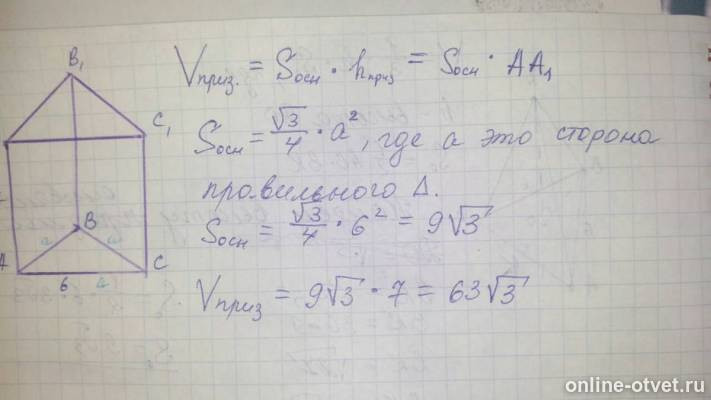 B₁
C₁
B
a
a
A
C
6
a
Vприз. = Sосн · hприз = Sосн · AA₁
Sосн = √3/4 · a², где а это сторона
правильного Δ.
Sосн = √3/4 · 6² = 9√3
Vприз = 9√3 · 7 = 63√3
online-otvet.ru